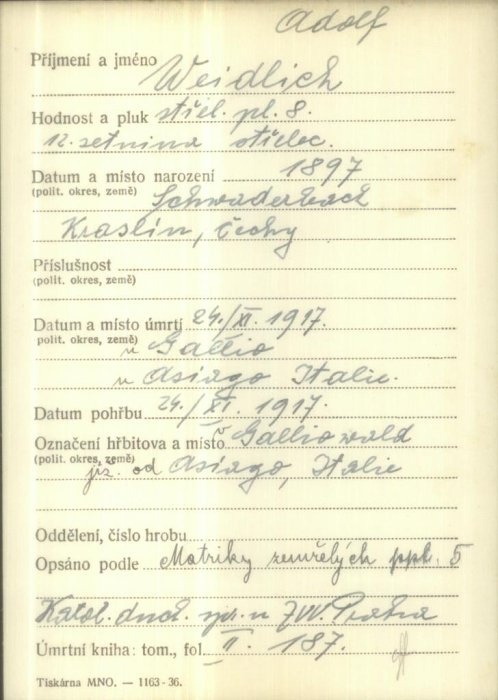 Adolf
Příjmení a jméno Weidlich
Hodnost a pluk střel. pl. 8.
12. setnina střelec.
Datum a místo narození 1897
(polit. okres, země) Schwaderbach
Kraslin, Čechy
Příslušnost
(polit. okres, země)
Datum a místo úmrtí 24./XI. 1917.
(polit. okres, země) u Gallio
u Asiago Italie.
Datum pohřbu 24./XI. 1917.
Označení hřbitova a místo v Galliowald
(polit. okres, země) již. od Asiago, Italie
Oddělení, číslo hrobu
Opsáno podle Matriky zemřelých ppl. 5
Katol. duch. spr. u ZVV. Praha
Úmrtní kniha: tom., fol. II. 187.
Tiskárna MNO. — 1163-36.